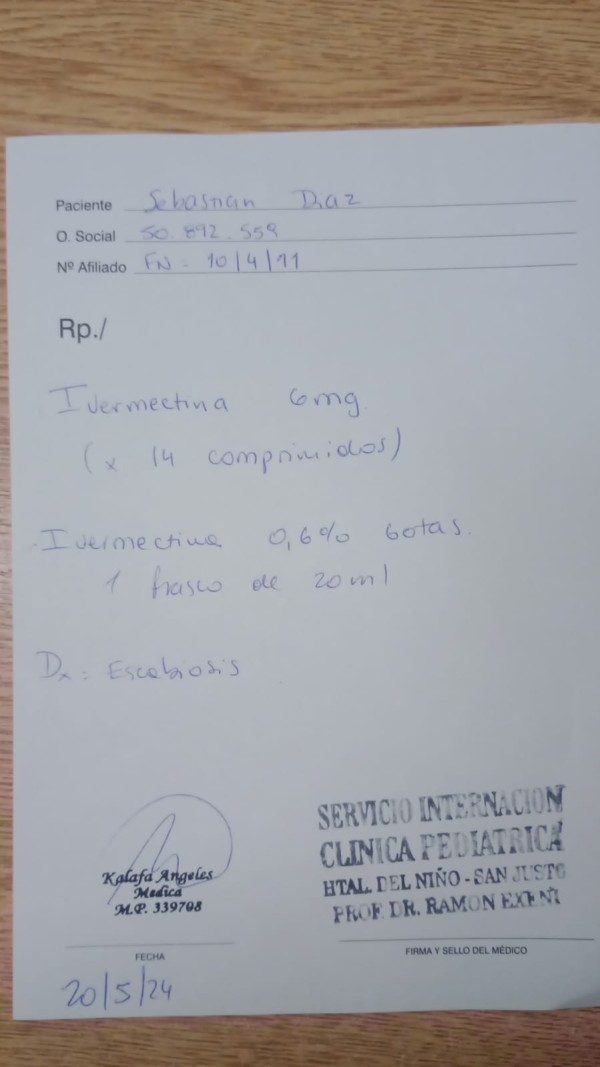 Paciente Sebastian Diaz
O. Social 50.892.559
Nº Afiliado FN: 10/4/11
Rp./
Ivermectina 6mg.
(x 14 comprimidos)
Ivermectina 0,6% Gotas.
1 frasco de 20ml
Dx: Escabiosis
Kalafa Angeles
Medica
M.P. 339708
SERVICIO INTERNACION
CLINICA PEDIATRICA
HTAL. DEL NIÑO - SAN JUSTO
PROF. DR. RAMON EXENI
FECHA
FIRMA Y SELLO DEL MÉDICO
20/5/24